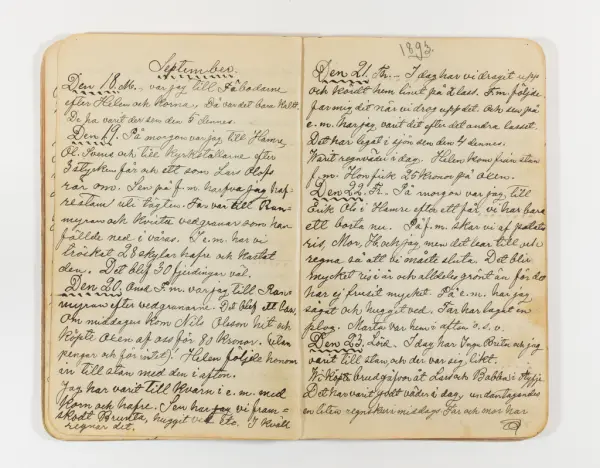 September.
Den 18. M. var jag till Fäbodarne
efter Helen och Korna. Då var det bara kallt.
De ha varit der sen den 5 dennes.
Den 19. På morgon var jag till Hamre
Ol. Svens och till Kyrkställarne efter
3 stycken får och ett som Lars Olofs
rår om. Sen på f.m. harfva jag haf-
reåkern uti tägten. Far var till Ran-
myran och Kvista vedgranar som han
fällde ned i våras. I e.m. har vi
tröskat 28 skylar hafre och Kastat
den. Det blef 30 fjerdingar väl.
Den 20. Onsd. F.m. var jag till Ran-
myran efter vedgranarne. Det blef ett lass.
Om middagen kom Nils Olsson hit och
köpte Oxen af oss för 80 Kronor.
pengar och för Helen följde honom
in till stan med den i afton.
Jag har varit till Kvarn i e.m. med
Korn och hafre. Sen har jag vi fram-
skodt Brunta, huggit ved etc. I kväll
regnar det.
1893.
Den 21. Th. I dag har vi dragit upp
och kördt hem linet på 2 lass. F.m. följde
far mig dit när vi drog upp det. Och sen på
e.m. har jag varit det efter det andra lasset.
Det har legat i sjön sen den 4 dennes.
Varit regnväder i dag. Helen kom från stan
f.m. Hon fick 25 kronor på Oxen.
Den 22. Fr. På morgon var jag till
Erik Ols i Hamre efter ett får, vi har bara
ett borta nu. På f.m. skar vi af potatis
ris, Mor, H. och jag, men det tear till och
regna så att vi måste sluta. Det blir
mycket ris i är och alldeles grönt än för det
har ej frusit mycket. På e.m. har jag
sågat och huggit ved. Far har lagat en
plog. Marta var hem i afton o.s.v.
Den 23. Lörd. I dag har Inga Brita och jag
varit till stan, och der var sig likt.
Vi Köpte brudgåfvor åt Lars och Babba i Nybje.
Det har varit godt väder i dag, undantagandes
en liten regnskur middags. Far och mor har